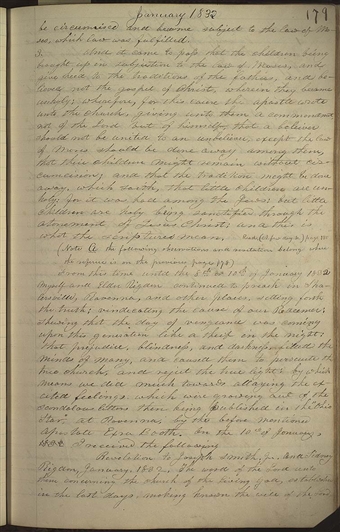 January 1832 179
be circumcised and become subject to the law of Mo-
ses, which law was fulfilled.
3. And it came to pass that the children being
brought up in subjection to the law of Moses, and
give heed to the traditions of their fathers, and be-
lieved not the gospel of Christ, wherein they became
unholy: wherefore, for this cause the apostle wrote
unto the church, giving unto them a commandment
not of the Lord but of himself, that a believer
should not be united to an unbeliever, except the law
of Moses should be done away among them,
that their children might remain without cir-
cumcision; and that the tradition might be done
away, which saith, that little children are un-
holy; for it was had among the Jews: but little
children are holy being sanctified through the
atonement of Jesus Christ; and this is
what the scriptures mean.
(Note A the following observations and
in the previous page 178)
From this time until the 8th or 10th of January 1832
myself and Elder Rigdon continued to preach in Sha-
lersville, Ravenna, and other places, setting forth
the truth; vindicating the cause of our Redeemer;
shewing that the day of vengeance was coming
upon this generation like a thief in the night:
that prejudice, blindness, and darkness filled the
minds of many, and caused them to persecute the
true church, and reject the true light: by which
means we did much towards allaying the ex-
cited feelings which were growing out of the
scandalous letters then being published in the "Ohio
Star," at Ravenna, by the before mentioned
apostate Ezra Booth. On the 10th of January
1832 I received the following
Revelation to Joseph Smith, Jr. and Sidney
Rigdon, January, 1832. The word of the Lord unto
them concerning the church of the living God, establish
in the last days, making known the will of the